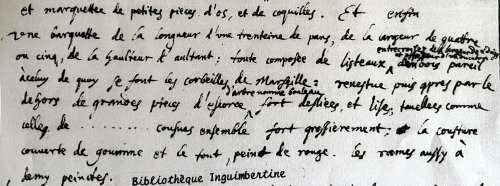 et marquettee de petites pieces, d'os, et de coquilles. Et enfin
une barquette de la longueur d'une trenteine de pans, de la largeur de quattre
ou cinq, de la haulteur d'aultant; toute composée de listeaux
entrecroisez
de bois pareil
à celuy de quoy se font les corbeilles de Marseille: revestue puis apres par le
d'arbre nommé bouleau
dehors de grandes pieces d'escorce fort desliees, et lises, taillees comme
celles de ......... cousues ensemble fort grossierement; et la cousture
couverte de gomme et le tout, peint de rouge. Les rames aussy à
demy peinctes. Bibliothèque Inguimbertine